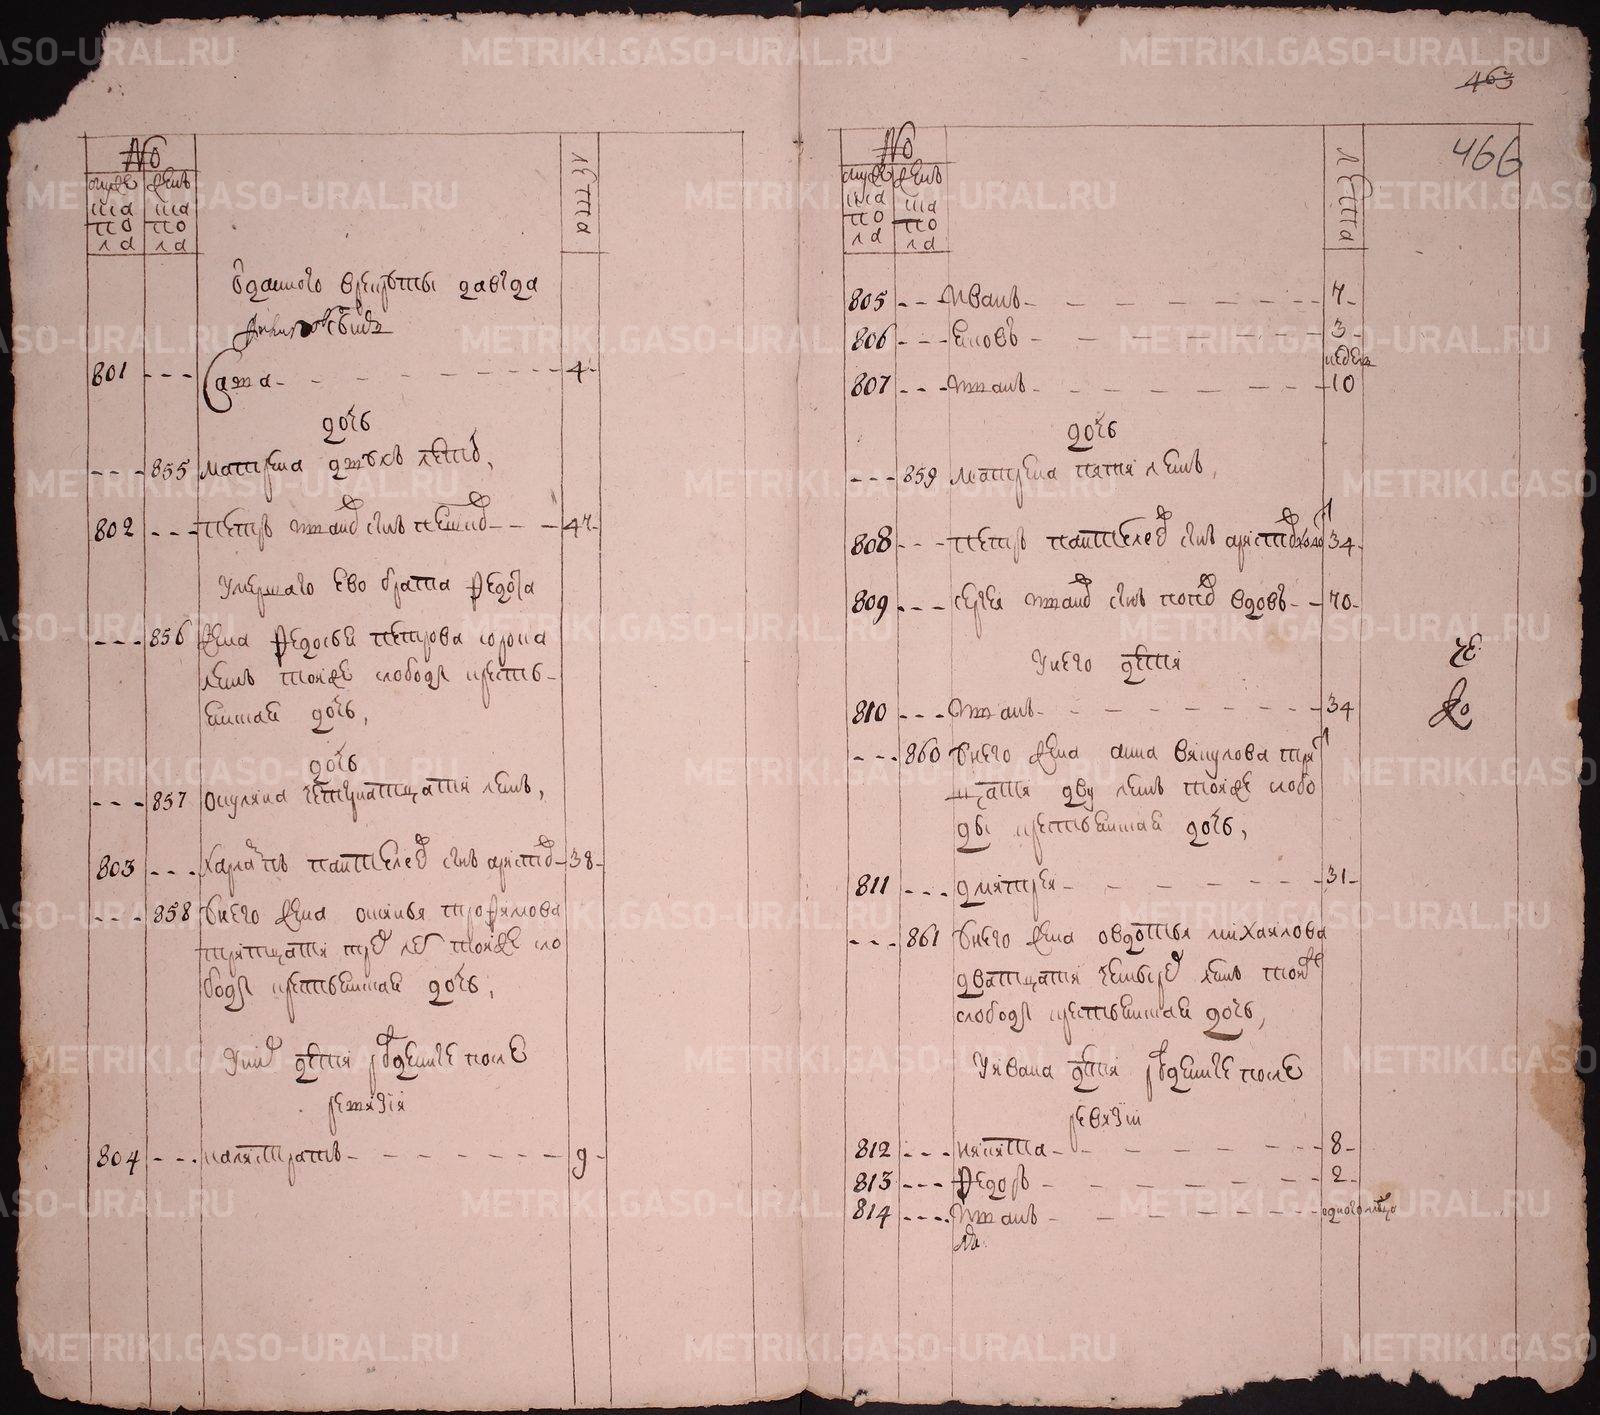 METRIKI.GASO-URAL.RU
463
466
№
муже
ска
по
ла
женс
ска
по
ла
лета
801 - - - Сава - - - 4 -
дочь
- - - 855 матрена лет
802 - - - петръ иванов снъ - - - 47 -
Умершаго ево брата Федота
- - - 856 жена Федосья петрова сорока
летъ тояже слободы кресть-
янская дочь,
дочь
- - - 857 Окулина четырнатцати летъ,
803 - - - Харлампъ пантелеев снъ - 38 -
- - - 858 Унего жена трофимова
тритцати трех лет тояже сло
боды крестьянская дочь,
Уних дети рожденные после
ревизии
804 - - - калистратъ - - - 9 -
№
муже
ска
по
ла
женс
ска
по
ла
лета
805 - - - Иванъ - - - 7 -
806 - - - Яковъ - - - 3 -
недель
807 - - - Иванъ - - - 10
дочь
- - - 859 матрена пяти летъ,
808 - - - петръ пантелеев снъ 34 -
809 - - - сергей иванов снъ попов вдовъ - - 70 -
Унего дети
810 - - - Иванъ - - - 34
- - - 860 Унего жена анна три
тцати дву летъ тояже слобо
ды крестьянская дочь,
811 - - - дмитрей - - - 31 -
- - - 861 Унего жена овдотья михаилова
дватцати четырех летъ тояже
слободы крестьянская дочь,
Уивана дети рожденные после
ревизии
812 - - - никита - - - 8 -
813 - - - Федоръ - - - 2 -
814 - - - Иванъ - - - одного